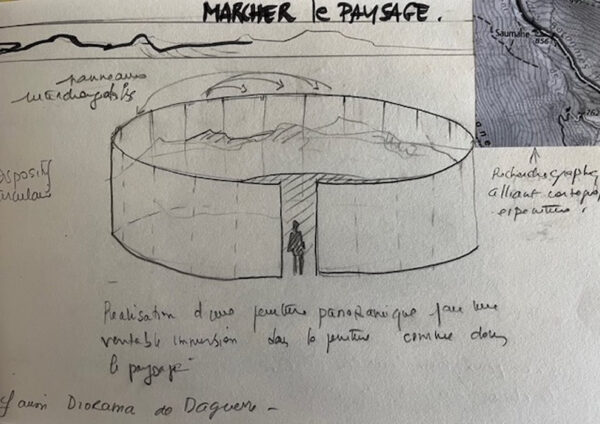 MARCHER le PAYSAGE.
Saumane
panneaux
interchangeables
Recherche graphique
alliant cartographie
Réalisation d'une peinture panoramique pour une
véritable immersion dans la peinture comme dans
le paysage
Diorama de Daguerre -